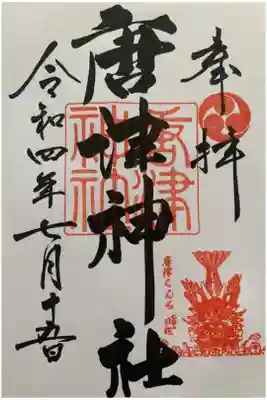 奉拝
唐津神社
令和四年七月十五日
唐津神社
唐津くんち